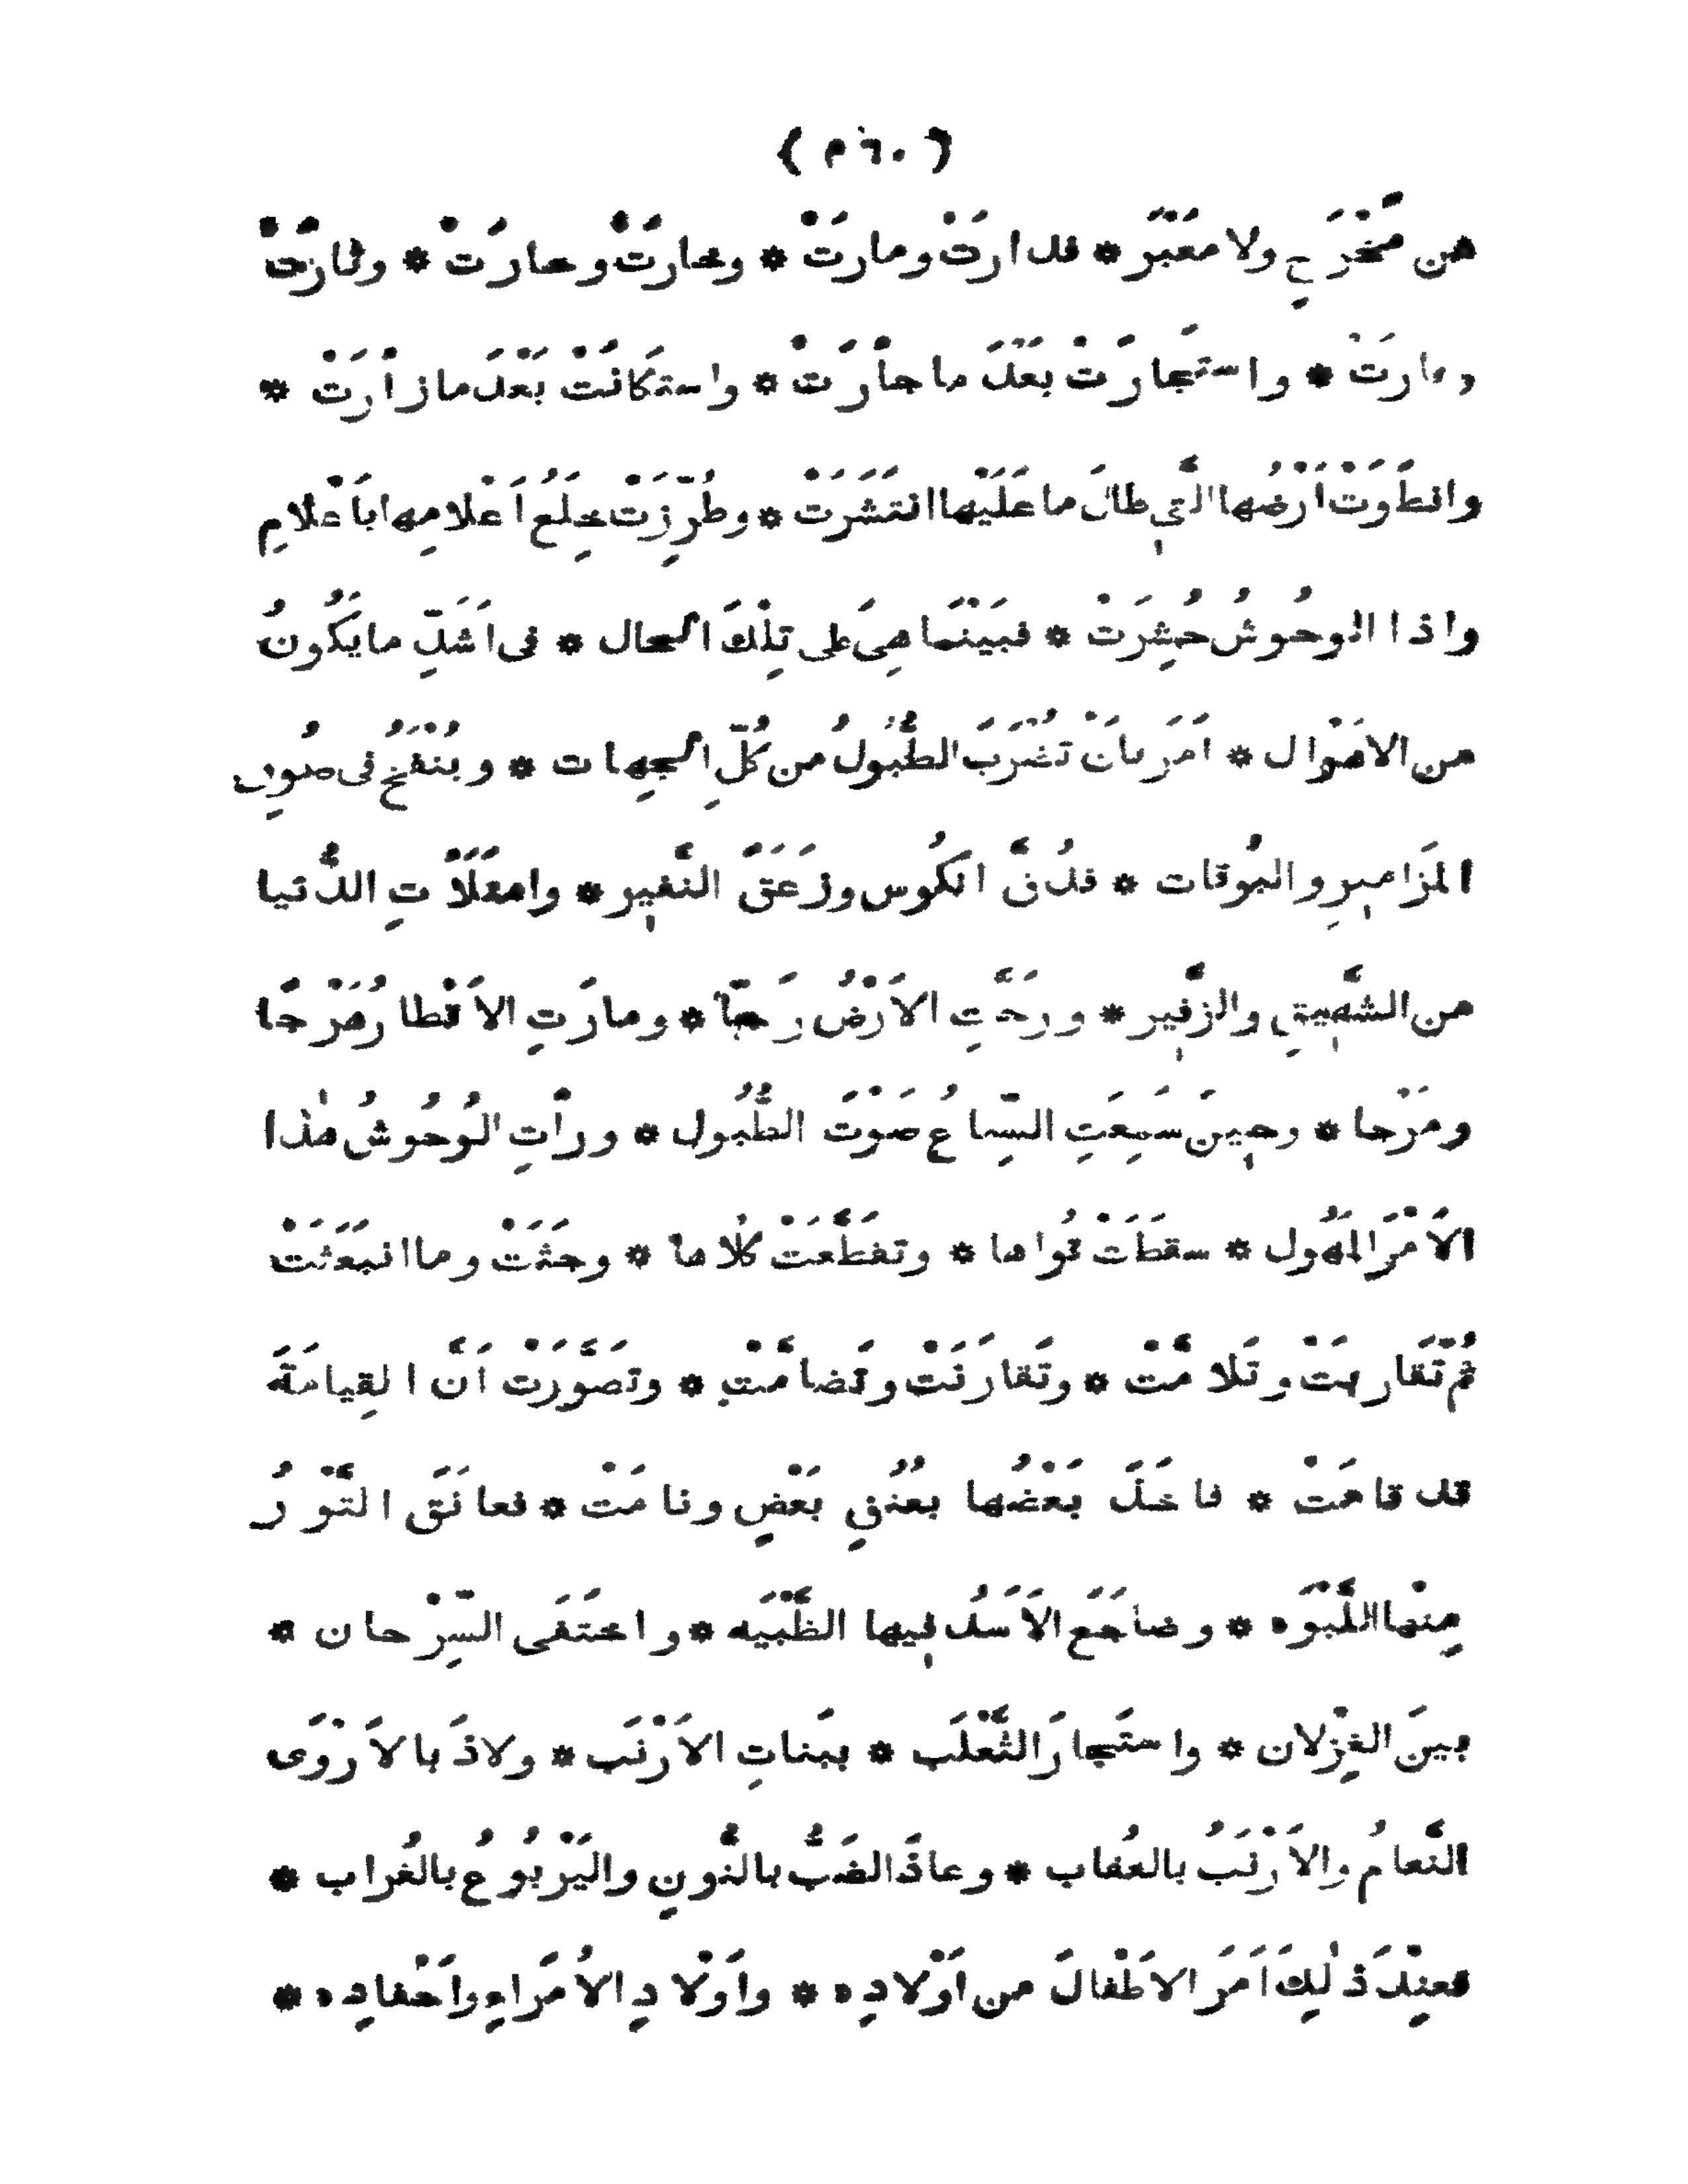 ( ٥٦٠ )
من مَخْرَجٍ ولا مَعْبَر * فدارَتْ ومارَتْ * وخارَتْ وحارَتْ * وثارَتْ
وبارَتْ * واستَجارَتْ بعْدَ ما جأرَتْ * واستكانَتْ بَعْدَ ما زأرَتْ *
وانطَوَتْ أرْضُها الَّتي طالَ ما عَلَيْها انتَشَرَتْ * وطُرِّزَتْ خِلَعُ اَعْلامِها باَعْلامِ
واذا الوحُوشُ حُشِرَتْ * فبَيْنَما هِىَ على تِلْكَ الحال * فى اَشَدِّ ما يَكُونُ
من الاهْوال * اَمَرَ بانْ تُضْرَبَ الطُّبُولُ من كُلِّ الجِهات * ويُنْفَخُ فى صُورِ
المَزاميرِ والبُوقات * فدُقَّ الكُوس وزَعَقَ النَّفير * وامتَلَاَتِ الدُّنيا
من الشَّهيقِ والزَّفير * ورَجَّتِ الاَرْضُ رَجّاً * ومارَتِ الاَقْطارُ هَرْجًا
ومَرْجا * وحينَ سَمِعَتِ السِّباعُ صَوْتَ الطُّبُول * ورأتِ الوُحُوشُ هذا
الاَمْرَ المَهُول * سقَطَتْ قُواها * وتقَطَّعَتْ كُلاها * وجَثَتْ وما انبَعَثَتْ
ثُمّ تَقارَبَتْ وتَلامَّتْ * وتَقارَنَتْ وتَضامَّتْ * وتصَوَّرَتْ اَنَّ القِيامَةَ
قد قامَتْ * فاخَذَ بَعْضُها بعُنُقِ بَعْضٍ ونامَتْ * فعانَقَ الثَّوْرُ
مِنْها اللَّبْوَه * وضاجَعَ الاَسَدُ فيها الظَّبْيَه * واختَفَى السِّرْحان *
بينَ الغِزْلان * واستَجارَ الثَّعْلَب * ببَناتِ الاَرْنَب * ولاذَ بالاَرْوَى
النَّعامُ والاَرْنَبُ بالعُقاب * وعاذَ الضَبُّ بالنُّونِ واليَرْبُوعُ بالغُراب *
فعِنْدَ ذلِكَ اَمَرَ الاَطْفالَ من اَوْلادِه * واَوْلادِ الاُمَراءِ واَحْفادِه *